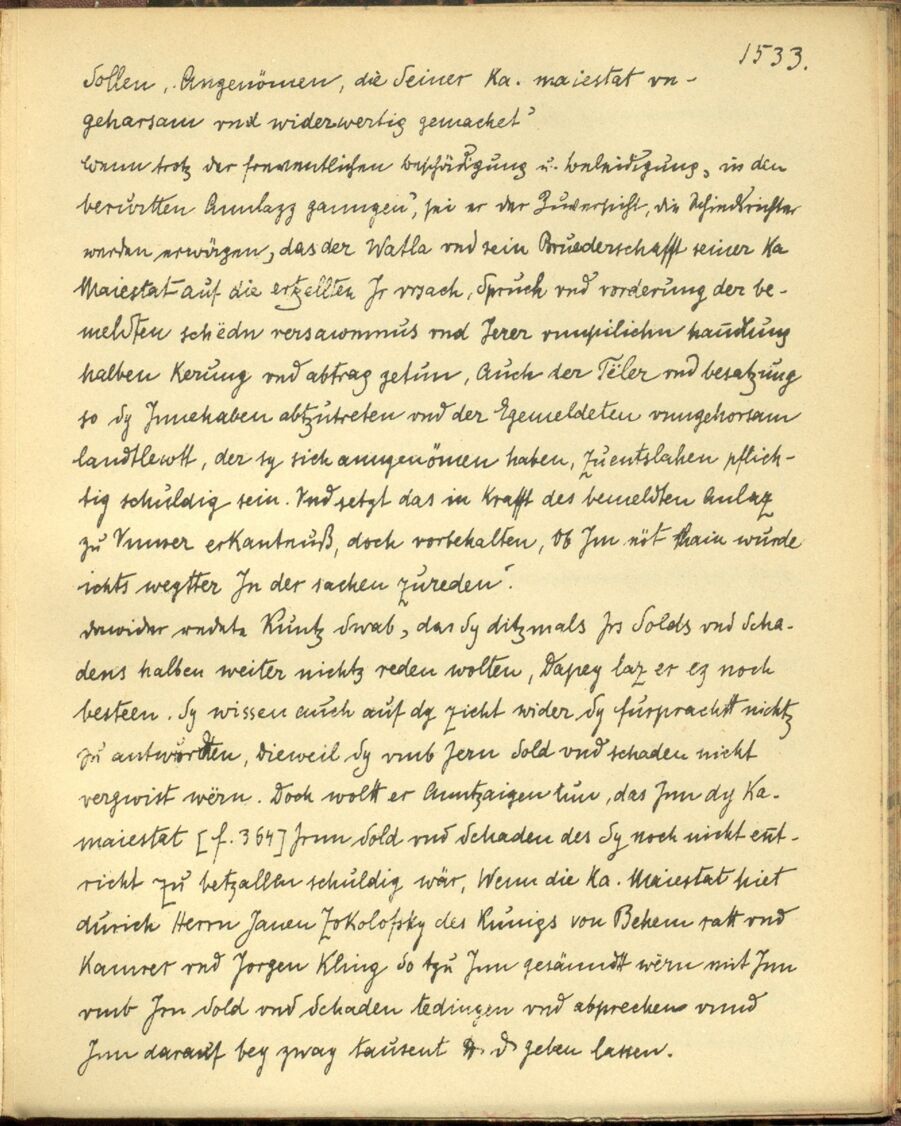 1533.
sollen, „Angenömen, die Seiner Ka. maiestat vn-
geharsam vnd widerwertig gemachet“
Wenn trotz der freventlichen Beschädigung u. Beleidigung „in den
berürtten Annlazz ganngen“, sei er der Zuversicht, die Schiedsrichter
werden erwägen, „das der Watla vnd sein Bruederschafft seiner Ka
Maiestat auf die ertzellten Jr vrsach, Spruch vnd vorderung der be-
meldten schëdn versawmnus vnd Jerer hanndlung
halben Kerung vnd abtrag getun, Auch der Tëler vnd besatzung
so Sy Innehaben abtzutreten vnd der Egemeldeten vnngehorsam
landtlewtt, der sy sich anngenömen haben, zuentslahen pflich-
tig schuldig sein. Vnd setzt das in Krafft des bemeldten Anlaz
zu Vnnser erkantnuß, doch vorbehalten, Ob Im nöt wurde
ichts weytter In der sachen zureden“.
Dawider redete Kuntz Swab, „das Sy ditzmals Jrs Solds vnd Scha-
dens halben weiter nichtz reden wolten, Dapey laz er ez noch
besteen. Sy wissen auch auf dy zicht wider Sy furpracht nichtz
zu antwürtten, dieweil Sy vmb Jern Sold vnd schaden nicht
vergwist wërn. Doch wolt er Anntzaigen tun, das Inn dy Ka.
maiestat [f. 364] Jrnn Sold vnd Schaden des Sy noch nicht ent-
richt zu betzallen schuldig wär, Wenn die Ka. Maiestat hiet
durich Herrn Janen Zokolofsky des Kunigs von Behem ratt vnd
Kamrer vnd Jorgen Kling So tzu Inn gesänndt wërn mit Inn
vmb Jrn Sold vnd Schaden tedingen vnd absprechen vnnd
Inn darauf bey zway tausent ₰ geben lassen.